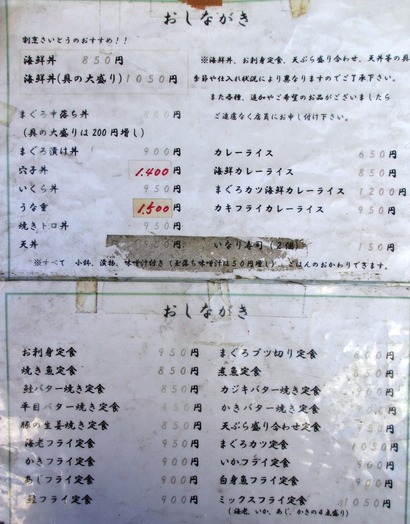 おしながき
割烹さいとうのおすすめ!!
海鮮丼 850円
海鮮丼(具の大盛り) 1050円
※海鮮丼、お刺身定食、天ぷら盛り合わせ、天丼等の具
季節や仕入れ状況により異なりますのでご了承下さい。
また各種、追加やご希望のお品がございましたら
ご遠慮なく店員にお申し付け下さい。
まぐろ中落ち丼 800円
(具の大盛りは200円増し)
まぐろ漬け丼 900円
穴子丼 1,400円
いくら丼 950円
うな重 1,500円
焼きトロ丼 950円
天丼 950円
カレーライス 650円
海鮮カレーライス 850円
まぐろカツ海鮮カレーライス 1200円
カキフライカレーライス 950円
いなり寿司(2個) 150円
※すべて 小鉢、漬物、味噌汁付き(玉落ち味噌汁は50円増し) ごはんのおかわりできます。
おしながき
お刺身定食 950円
焼き魚定食 850円
鮭バター焼き定食 900円
平目バター焼き定食 円
豚の生姜焼き定食 900円
海老フライ定食 950円
かきフライ定食 900円
あじフライ定食 900円
鮭フライ定食 900円
まぐろブツ切り定食 円
煮魚定食 円
カジキバター焼き定食 円
かきバター焼き定食 円
天ぷら盛り合わせ定食 円
まぐろカツ定食 1050円
いかフライ定食 900円
白身魚フライ定食 900円
ミックスフライ定食 1050円
(海老、いか、あじ、かきの4点盛り)